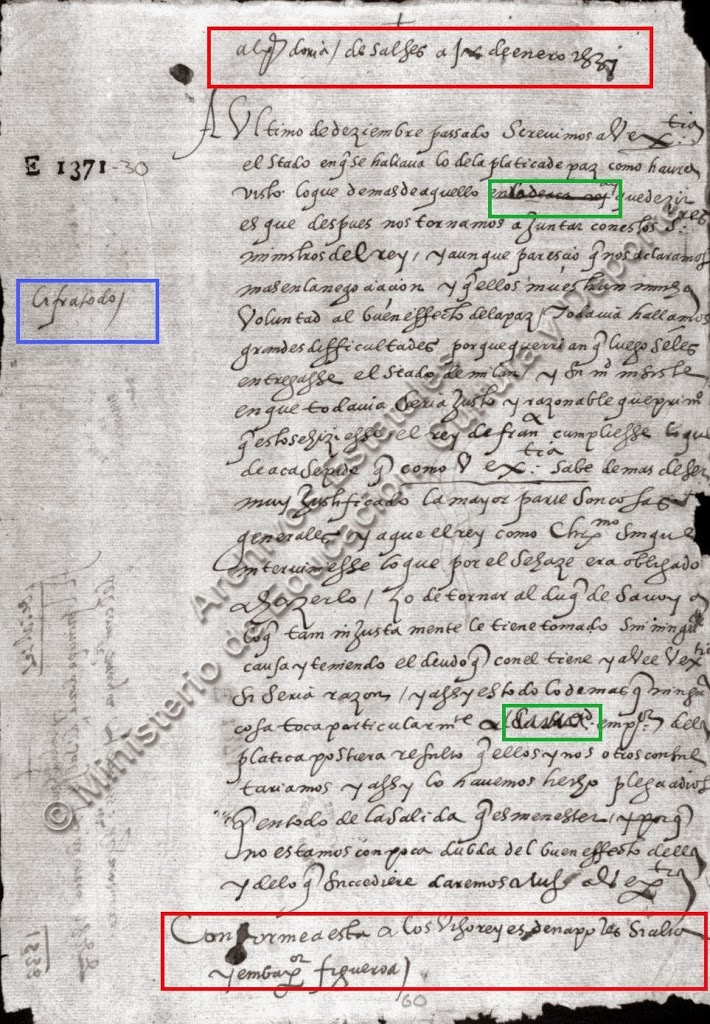 al prī doria / de Salses a de enero 1538
A Ultimo de deziembre passado Screvimos a V ex.tia
E 1371-30
el Stado en q̃ se hallava lo de la platica de paz como havra
visto. lo que de mas de aquello que dezir
es que despues nos tornamos a Juntar con estos S.res
ministros del rey, y aunque parescio q̃ nos declaramos
mas en la negociacion y q̃ ellos mucha
Cifra todo /
Voluntad al buen effecto de la paz, Todavia hallamos
grandes difficultades, porque querrian q̃ luego se les
entregasse el Stado de milan, y Su m.t insiste
en que todavia Seria Justo y razonable que prim.o
q̃ esto se hiziesse, el rey de fran.a cumpliesse lo que
de aca Se pide q̃ como V ex.tia Sabe demas de Ser
muy Justificado la mayor parte Son cosas
generales, y a que el rey como Chr.mo Sin que
interviniesse lo que por el Se haze era obligado
a hazerlo / Lo de tornar al duq̃ de Savoya
lo q̃ tam injustamente le tiene tomado Sin ninguna
causa y teniendo el deudo q̃ con el tiene ya vee V ex.tia
Si Seria razon, y assy es todo lo demas q̃ ninguna
cosa toca particularm.te a emp.or de la
platica postrera resulto q̃ ellos y nosotros consul
tariamos y assy lo havemos hecho plega a dios
q̃ en todo de la Salida q̃ es menester, y porq̃
no estamos con poca dubda del buen effecto della
y de lo q̃ Succediere daremos aviso a V ex.tia
Conforme a esta a los Visoreyes de napples Sicilia
y embax.or figueroa /
60
1538
© Ministerio de Educación, Cultura y Deporte
Archivos Estatales